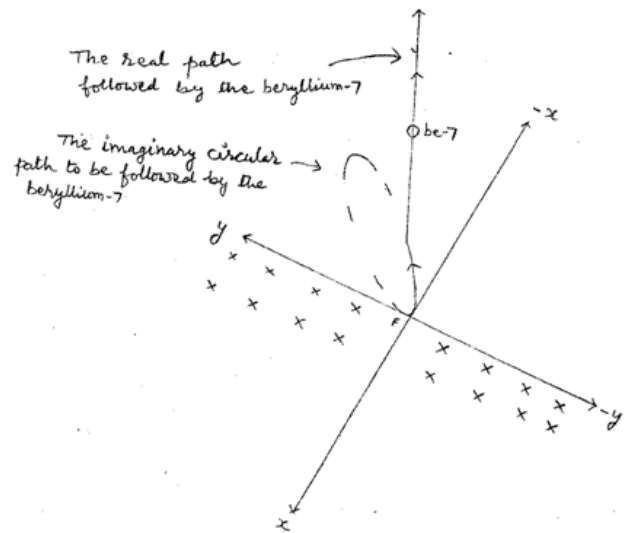 The real path
followed by the beryllium-7
be-7
-x
The imaginary circular
path to be followed by the
beryllium-7
y
F
-y
x